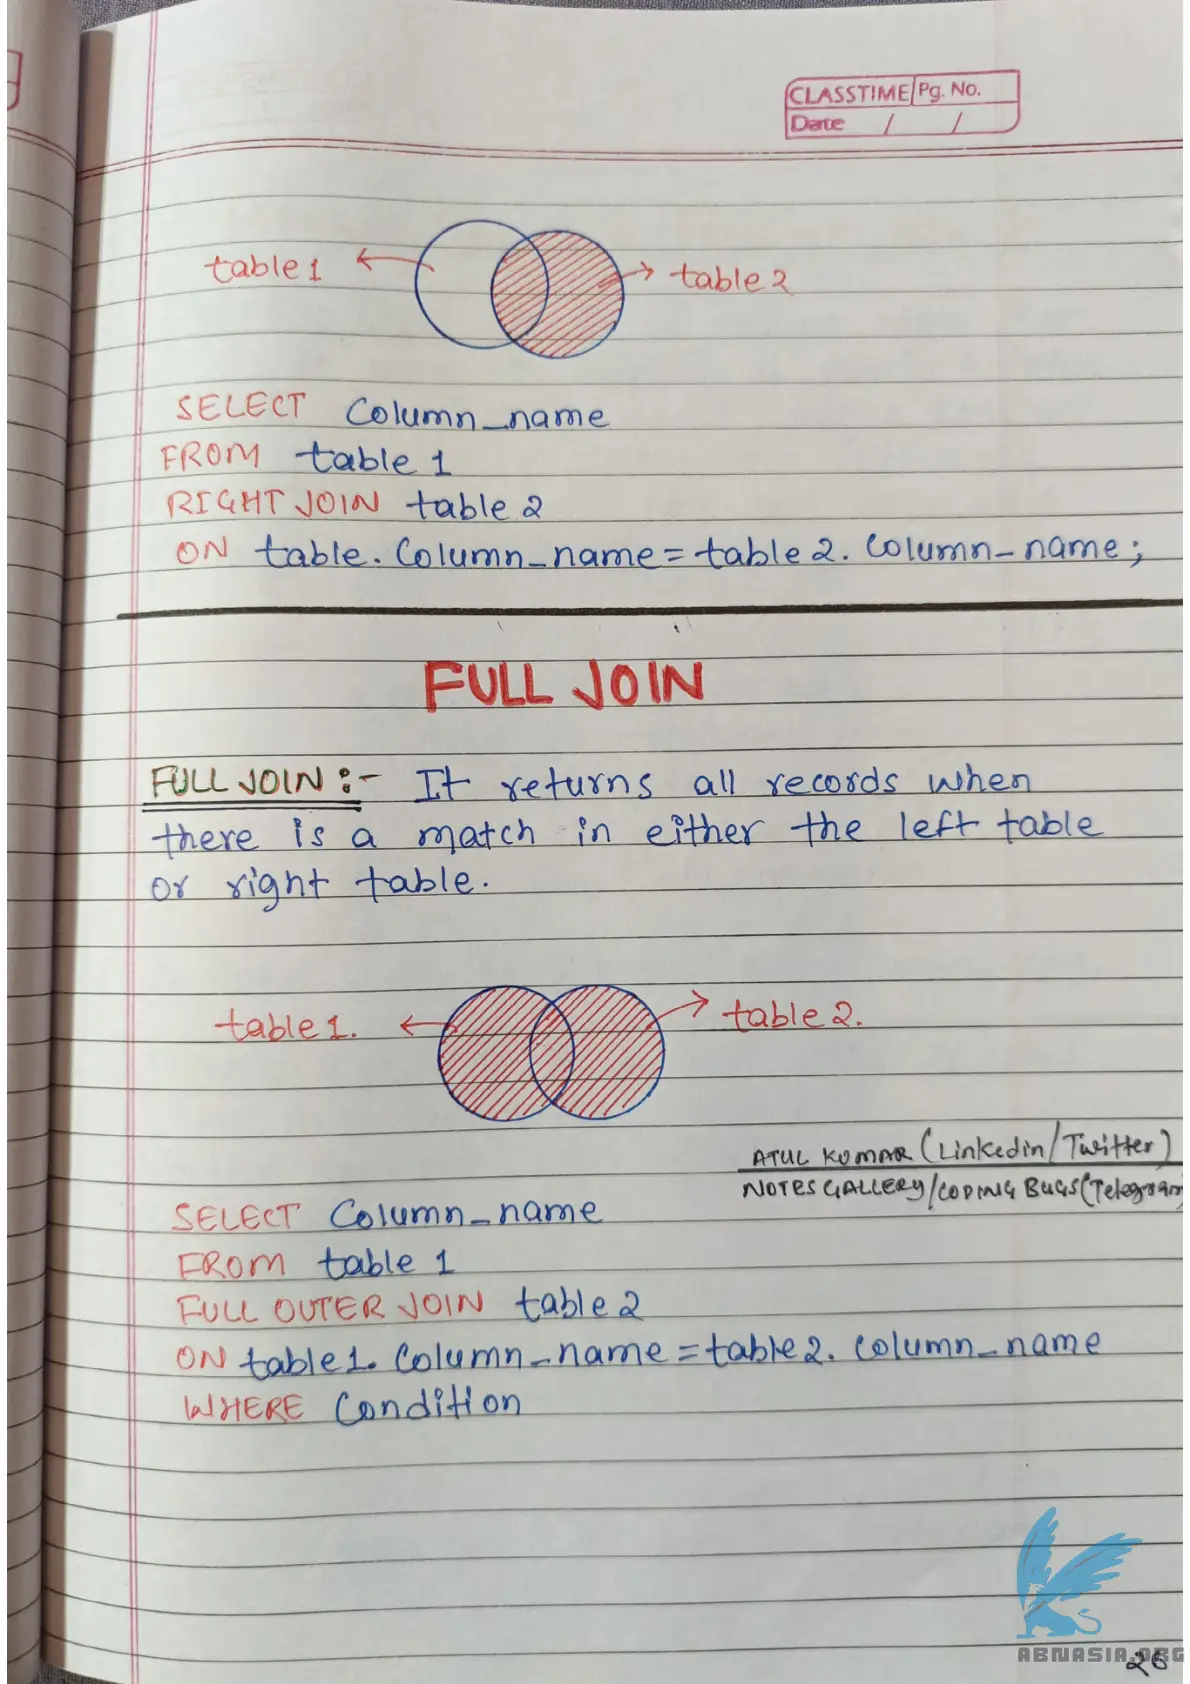 CLASSTIME Pg. No.
Date / /
table 1
table 2
SELECT Column_name
FROM table 1
RIGHT JOIN table 2
ON table. Column_name = table 2. Column_name;
FULL JOIN
FULL JOIN :- It returns all records when
there is a match in either the left table
or right table.
table 1.
table 2.
ATUL KUMAR (Linkedin/Twitter)
NOTES GALLERY/CODING BUGS (Telegram)
SELECT Column_name
FROM table 1
FULL OUTER JOIN table 2
ON table 1. Column_name = table 2. Column_name
WHERE Condition
ABNASIA.ORG
26